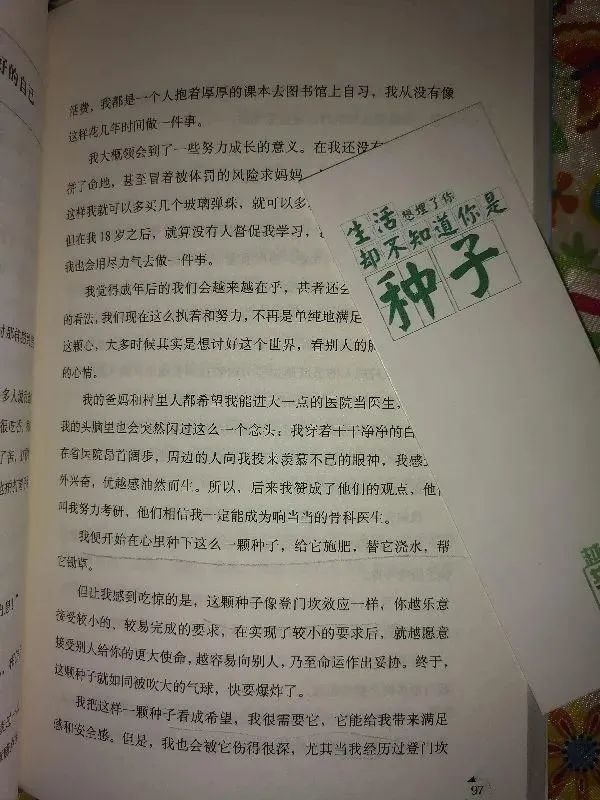 好的自己
茫费，我都是一个人抱着厚厚的课本去图书馆上自习，我从没有像
这样花几年时间做一件事。
我大概领会到了一些努力成长的意义。在我还没有
拼了命地，甚至冒着被体罚的风险求妈妈
这样我就可以多买几个玻璃弹珠，就可以多
但在我18岁之后，就算没有人督促我学习，
我也会用尽力气去做一件事。
我觉得成年后的我们会越来越在乎，甚者还会
的看法，我们现在这么执着和努力，不再是单纯地满足
这颗心，大多时候其实是想讨好这个世界，看别人的脸
的心情。
我的爸妈和村里人都希望我能进大一点的医院当医生，
我的头脑里也会突然闪过这么一个念头：我穿着干干净净的白
在省医院昂首阔步，周边的人向我投来羡慕不已的眼神，我感
外兴奋，优越感油然而生。所以，后来我赞成了他们的观点，他
叫我努力考研，他们相信我一定能成为响当当的骨科医生。
我便开始在心里种下这么一颗种子，给它施肥，替它浇水，帮
它锄草。
但让我感到吃惊的是，这颗种子像登门坎效应一样，你越乐意
接受较小的、较易完成的要求，在实现了较小的要求后，就越愿意
接受别人给你的更大使命，越容易向别人，乃至命运作出妥协。终于，
这颗种子就如同被吹大的气球，快要爆炸了。
我把这样一颗种子看成希望，我很需要它，它能给我带来满足
感和安全感。但是，我也会被它伤得很深，尤其当我经历过登门坎
97
生活想埋了你
却不知道你是
种子